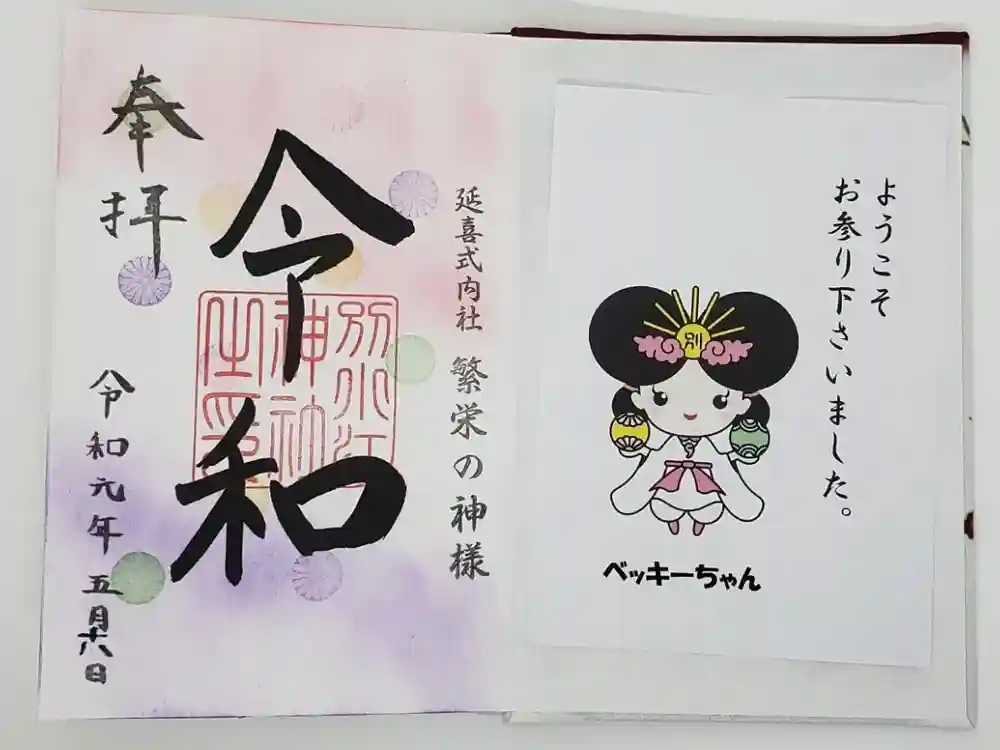 ようこそ
お参り下さいました。
別
ベッキーちゃん
延喜式内社 繁栄の神様
奉拝
令和
別小江
神社
之印
令和元年五月十八日